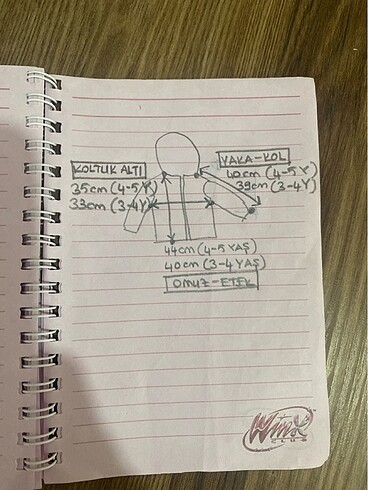 KOLTUK ALTI
35cm (4-5Y)
33cm (3-4Y)
YAKA-KOL
40cm (4-5Y)
39cm (3-4Y)
44cm (4-5 YAŞ)
40cm (3-4 YAŞ)
OMUZ-ETEK
WinX
CLUB